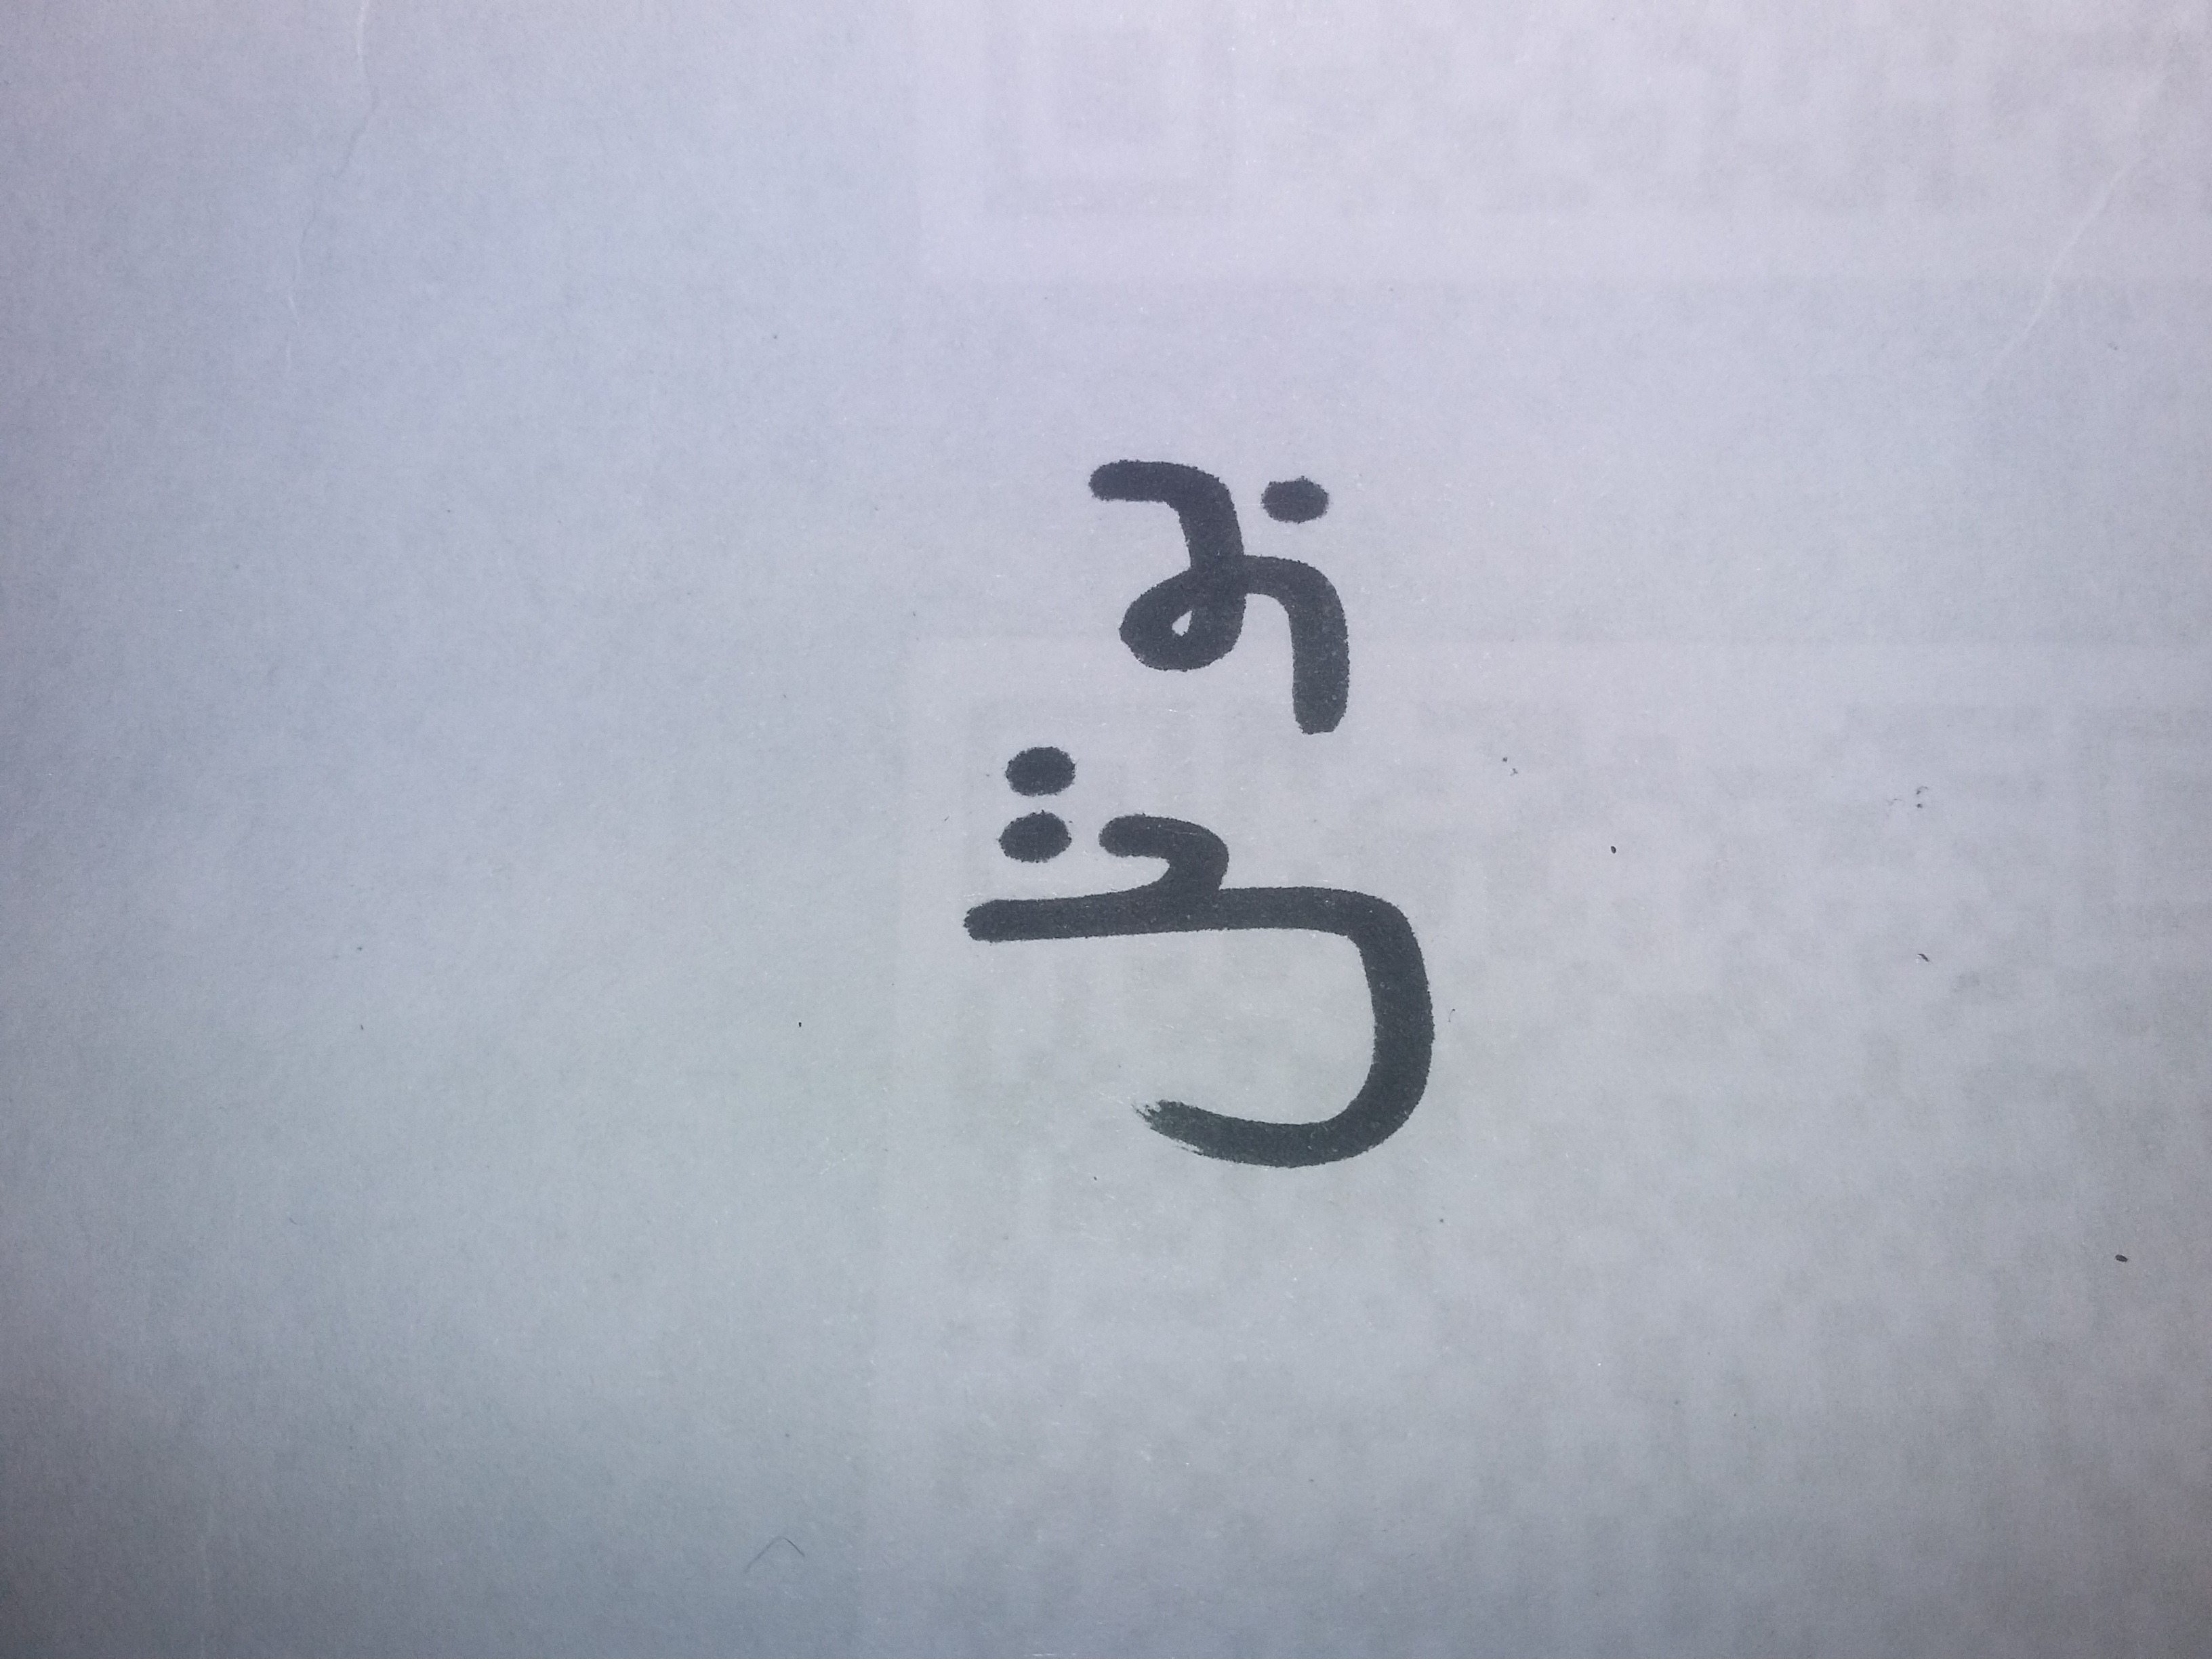 بوتل